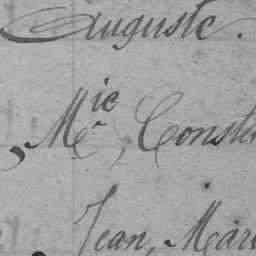 Auguste.
, Mie, Const
Jean, Mari